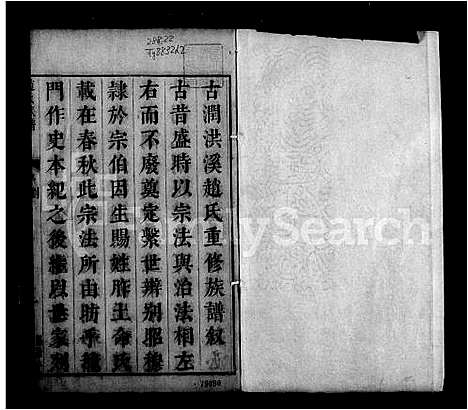 古潤洪溪趙氏重修族譜叙
古昔盛時以宗法與治法相左
右而不廢奠定繫世辨別昭穆
隸於宗伯因生賜姓胙土命氏
載在春秋此宗法所由昉乎龍
門作史本紀之後繼以世家列
Search